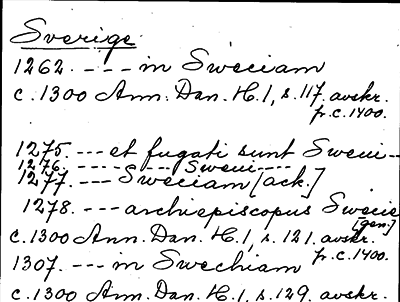 Sverige
1262. --- in Sweciam
c. 1300 Ann. Dan. H. 1, s. 117, avskr.
fr. c. 1400.
1275. --- et fugati sunt Sweui --
1276. ----- --- Sweui ----
1277. --- Sweciam [ack.]
1278. --- archiepiscopus Swecie
[gen.]
c. 1300 Ann. Dan. H. 1, s. 121, avskr.
fr. c. 1400.
1307. --- in Swechiam
c. 1300 Ann. Dan. H. 1, s. 129, avskr.